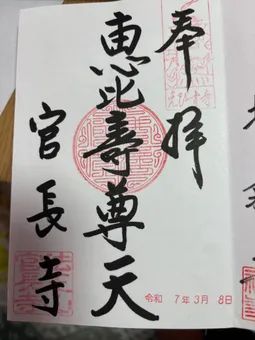 奉拝
恵比寿尊天
宮長寺
令和 7年3月 8日